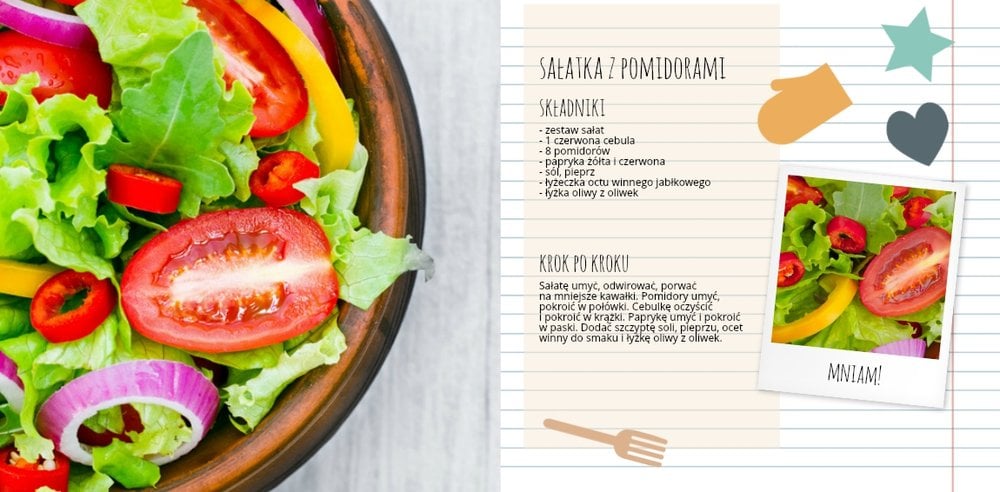 SAŁATKA Z POMIDORAMI
SKŁADNIKI
- zestaw sałat
- 1 czerwona cebula
- 8 pomidorów
- papryka żółta i czerwona
- sól, pieprz
- łyżeczka octu winnego jabłkowego
- łyżka oliwy z oliwek
KROK PO KROKU
Sałatę umyć, odwirować, porwać
na mniejsze kawałki. Pomidory umyć,
pokroić w połówki. Cebulkę oczyścić
i pokroić w krążki. Paprykę umyć i pokroić
w paski. Dodać szczyptę soli, pieprzu, ocet
winny do smaku i łyżkę oliwy z oliwek.
MNIAM!